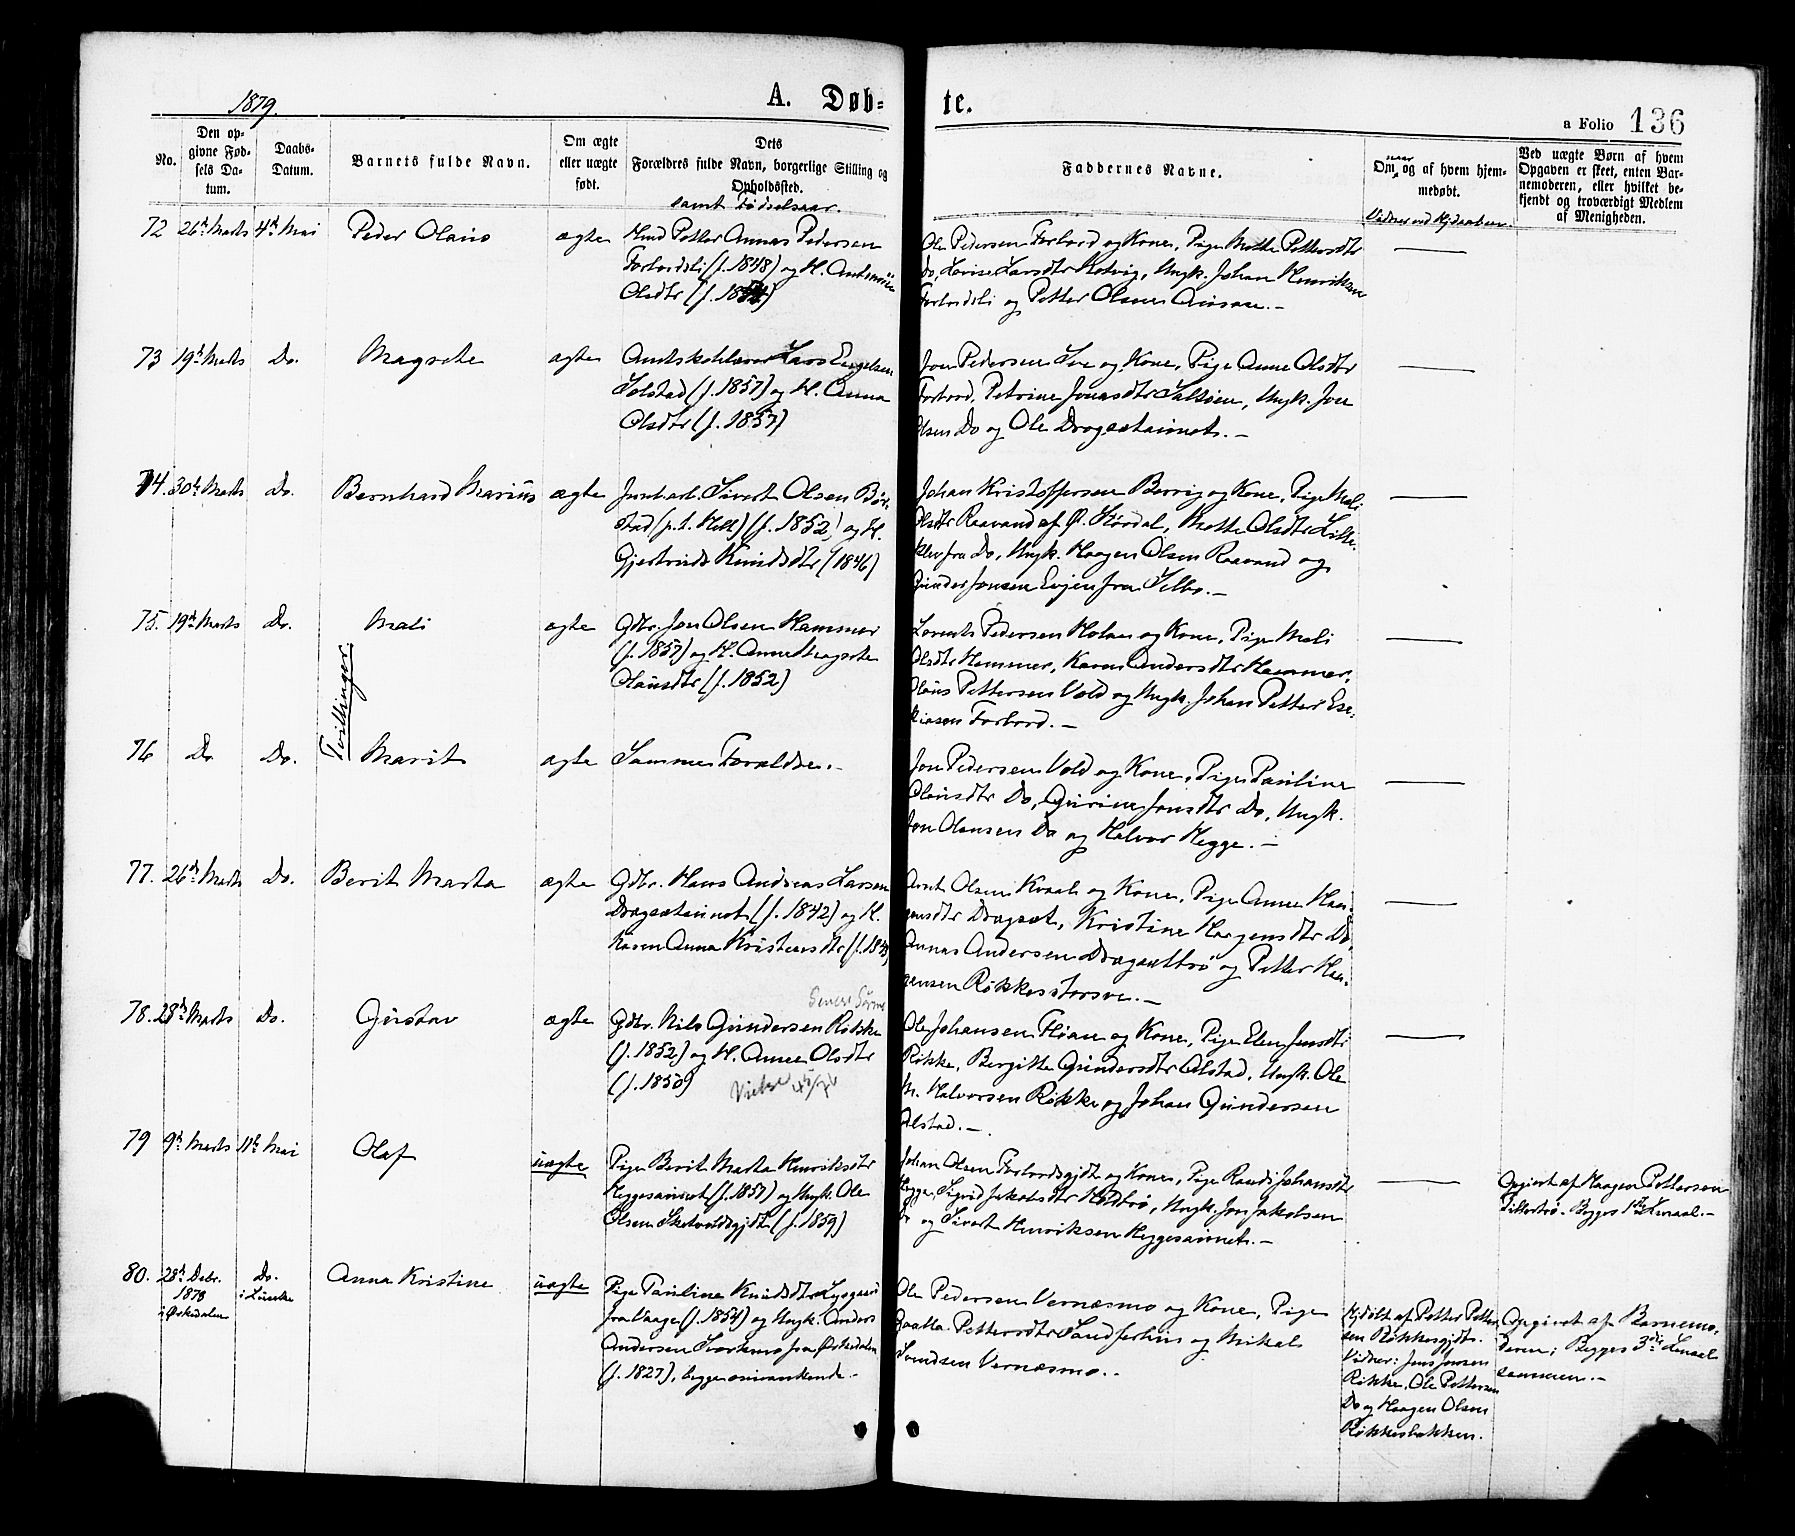 1879.
A. Døb-
te.
a Folio 136
No.
Den op-
givne Fød-
sels Da-
tum.
Daabs-
Datum.
Barnets fulde Navn.
Om ægte
eller uægte
født.
Dets
Forældres fulde Navn, borgerlige Stilling og
Opholdssted.
samt Fødselsaar.
Faddernes Navne.
Om, naar og af hvem hjem-
medøbt.
Vidner ved Hjdaaben
Ved uægte Børn af hvem
Opgaven er skeet, enten Bar-
nemoderen, eller hvilket be-
kjendt og troværdigt Medlem
af Menigheden.
72 26de Marts 4de Mai Peder Olaus ægte
Hmd Petter Annas Pedersen
Forbordsli (f. 1848) og H.
Olsdtr
Ole Pedersen Forbord og Kone, Pige Mette Pettersdtr
Do, Lovise Larsdtr Hotvig, Ungk. Johan Henriksen
Forbordsli og Petter Olsen Aunsaas.—
73 19de Marts Do. Magrete ægte
Amtskolelærer Lars Engelsen
Solstad (f. 1857) og H. Anna
Olsdtr (f. 1857)
Jon Pedersen Sve og Kone, Pige Anne Olsdtr
Forbord, Petrine Jonasdtr Saltøien, Ungk. Jon
Olsen Do og Ole Dragsetaunet.—
74. 30te Marts Do. Bernhard Marius ægte
Jernbarb. Sivert Olsen Bør-
stad (p.t. Hell) (f. 1852) og H.
Gjertrude Knudsdtr (1846)
Johan Kristoffersen Berrig og Kone, Pige Mali
Olsdtr Raavand af Ø. Størdal, Mette Olsdtr Lille-
klev fra Do, Ungk. Haagen Olsen Raavand og
Gunder Jonsen Evjen fra Selbo.—
Tvillinger.
75. 19de Marts Do. Mali ægte
Gdbr. Jon Olsen Hammer
(f. 1857) og H. Anne Magrete
Olausdtr (f. 1852)
Lorents Pedersen Holan og Kone, Pige Mali
Olsdtr Hammer, Karen Andersdtr Hammer,
Olaus Pettersen Vold og Ungk. Johan Petter Ese-
kiasen Forbord.—
76 Do Do. Marit ægte
Samme Forældre.—
Jon Pedersen Vold og Kone, Pige Pauline
Olausdtr Do, Gurine Jonsdtr Do, Ungk.
Jon Olausen Do og Halvor Hegge.—
77. 26de Marts Do. Berit Marta ægte
Gdbr. Hans Andreas Larsen
Dragsetaunet (f. 1842) og H.
Karen Anna Kristensdtr
Arnt Olsen Kvaal og Kone, Pige Anne Haa-
gensdtr Dragset, Kristine Haagensdtr Do,
Annas Andersen Dragsettrø og Petter Haa-
gensen Røkkestorsve.—
78. 28de Marts Do. Gustav ægte
Gdbr. Nils Gundersen Røkke
(f. 1852) og H. Anne Olsdtr
(f. 1850)
Ole Johansen Fløan og Kone, Pige Elen Jensdtr
Røkke, Bergitte Gundersdtr Alstad, Ungk. Ole
M. Halvorsen Røkke og Johan Gundersen
Alstad.—
79 9de Marts 11te Mai Olaf uægte
Pige Berit Marta Henriksdtr
Heggesaunet (f. 1857) og Ungk. Ole
Olsen Skatvoldsgjdt (f. 1859)
Johan Olsen Forbordsgjdt og Kone, Pige Randi Johansdtr
Hegge, Sigrid Jakobsdtr Holtrø, Ungk. Jon Jakobsen
Do og Sivert Henriksen Heggesaunet.—
Opgivet af Haagen Pettersen
Fittentrø. Begges 1ste Lmaal.—
80. 28de Debr.
1878
i Ørkedalen
Do.
i Kirke
Anna Kristine uægte
Pige Pauline Knudsdtr Lysgaard
fra Vaage (f. 1854) og Ungk. Anders
Andersen Storkmo fra Ørkedalen
(f. 1827), begge omvankende.—
Ole Pedersen Vernæsmo og Kone, Pige
Pettersdtr Sandferhus og Mikal
Svendsen Vernæsmo.
Hjdøbt af Petter Petter-
sen Røkkesgjdt.
Vidner: Jens Jensen
Røkke, Ole Pettersen
Do og Haagen Olsen
Røkkesbakken.
Opgivet af Barnemo-
deren; Begges 3die Lmaal
sammen.—